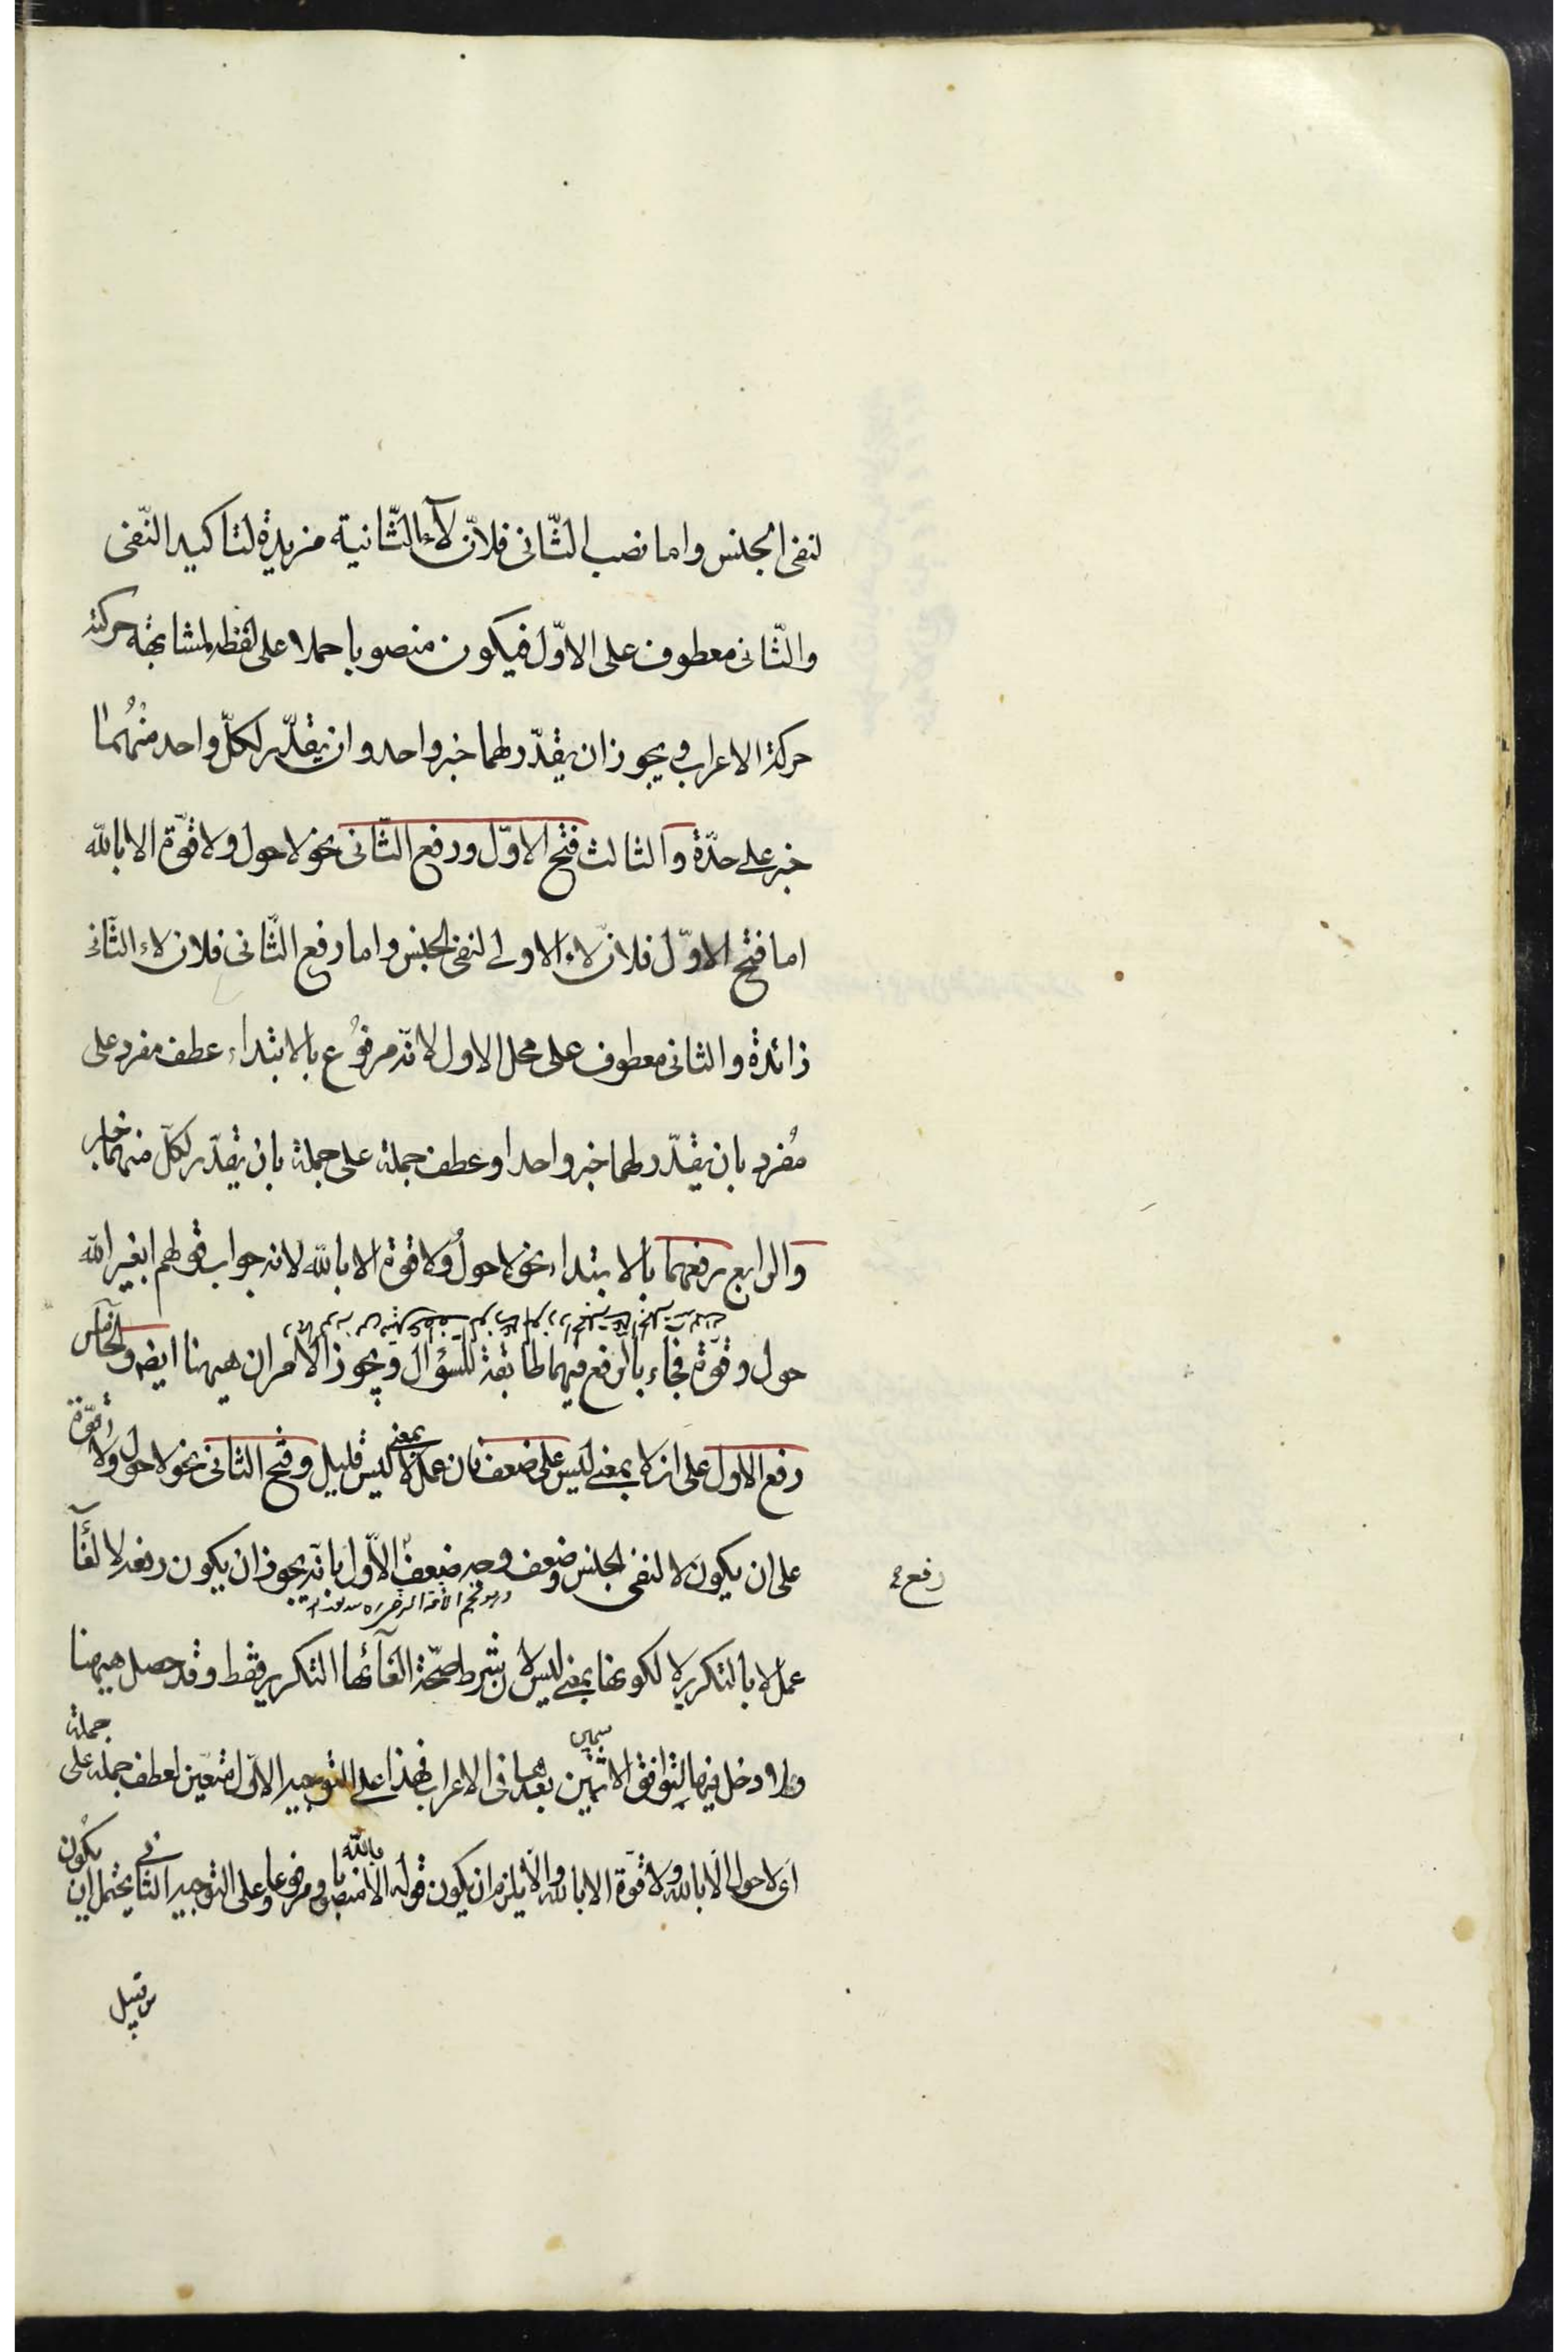 لنفى الجنس واما نصب الثّانى فلانّ لاء الثّانية مزيدة لتاكيد النّفى
والثّانى معطوف على الاوّل فيكون منصوبا حملا على لفظه لمشابهة حركته
حركة الاعراب ويجوز ان يقدّر لهما خبر واحد وان يقدّر لكلّ واحد منهُما
خبر على حدّة والثالث فتح الاوّل ورفع الثّانى نحو لا حول ولا قوّة الا بالله
اما فتح الاوّل فلانّ لاء الاولى لنفى الجنس واما رفع الثّانى فلان لاء الثّانى
زائدة والثانى معطوف على محل الاول لانّه مرفوُع بالابتداء عطف مفرد على
مُفرد بان يقدّر لهما خبر واحد او عطف جملة على جملة بان يقدّر لكلّ منهما خبر
والرابع رفعهما بالابتداء نحو لا حولٌ ولا قوة الا بالله لانه جواب قولهم ابغير الله
حول وقوة فجاء بالرفع فيهما مطابقة للسؤال ويجوز الامران ههنا ايضا والخامس
رفع الاول على ان لا بمعنى ليس على ضعف فان عمل لا بمعنى ليس قليل وفتح الثانى نحو لا حول ولا قوّة
على ان يكون لا لنفى الجنس وضعف وجه ضعف الاوّل بانّه يجوز ان يكون رفعه لالغاء
رفع
عمل لا بالتكرير لا لكونها بمعنى ليس لان شرط صحّة الغائها التكرير فقط وقد حصل ههنا
ولا دخل فيها لتوافق الاسمين بعدها فى الاعراب فهذا على التوجيه الاوّل متعيّن لعطف جملة على جملة
اى لا حول الا بالله ولا قوّة الا بالله والّا يلزم ان يكون قوله الا بالله منصوبا ومرفوعا وعلى التوجيه الثانى يحتمل ان يكون
من قبيل